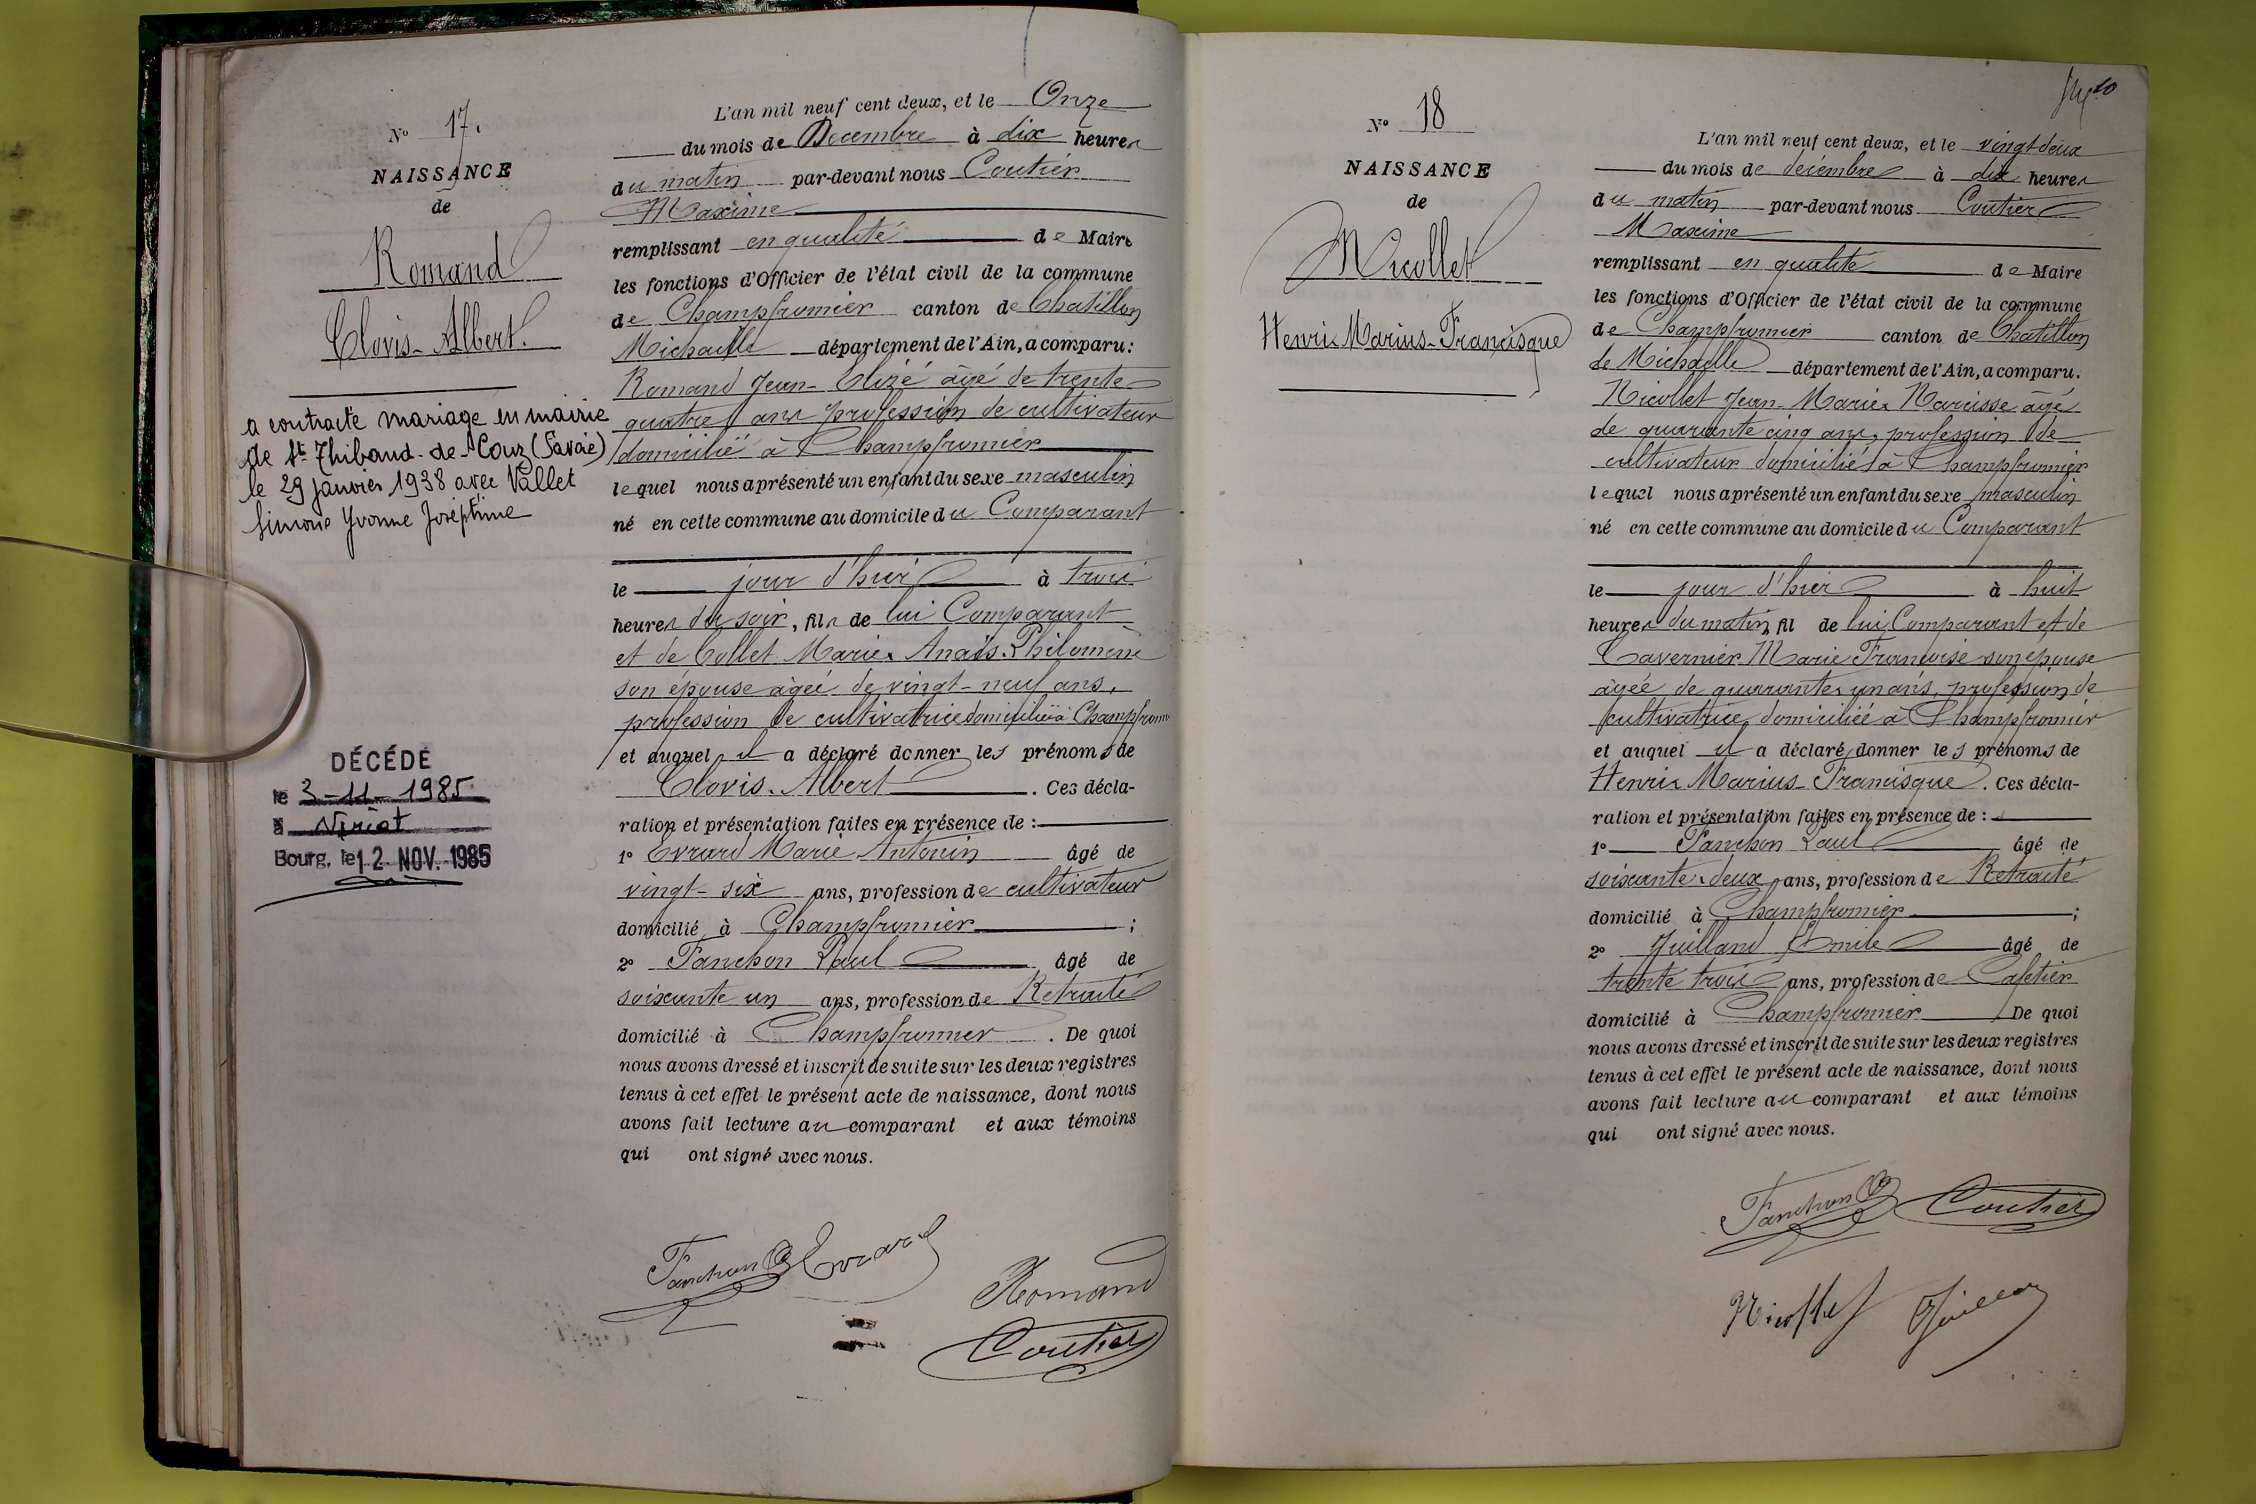 N° 17.
NAISSANCE
de
Romand
Clovis-Albert.
a contracté mariage en mairie
de St Thibaud-de-Couz (Savoie)
le 29 janvier 1938 avec Vallet
Simone Yvonne Joséphine
DÉCÉDÉ
le 3-11-1985
à Viriat
Bourg, le 12 NOV. 1985
L'an mil neuf cent deux, et le Onze
du mois de Décembre à dix heures
du matin par-devant nous Coutier
Maxime
remplissant en qualité de Maire
les fonctions d'Officier de l'état civil de la commune
de Champfromier canton de Chatillon
Michaille département de l'Ain, a comparu:
Romand Jean-Elizé âgé de trente
quatre ans profession de cultivateur
domicilié à Champfromier
lequel nous a présenté un enfant du sexe masculin
né en cette commune au domicile du Comparant
le jour d'hier à trois
heures du soir, fils de lui Comparant
et de Collet Marie-Anaïs-Philomène
son épouse âgée de vingt-neuf ans,
profession de cultivatrice domiciliée à Champfromier
et auquel il a déclaré donner les prénoms de
Clovis-Albert. Ces décla-
ration et présentation faites en présence de :
1° Evrard Marie Antonin âgé de
vingt-six ans, profession de cultivateur
domicilié à Champfromier ;
2° Tanchon Paul âgé de
soixante un ans, profession de Retraité
domicilié à Champfromier. De quoi
nous avons dressé et inscrit de suite sur les deux registres
tenus à cet effet le présent acte de naissance, dont nous
avons fait lecture au comparant et aux témoins
qui ont signé avec nous.
Tanchon P Evrard
Romand
Coutier
N° 18
NAISSANCE
de
Nicollet
Henri-Marius-Francisque
L'an mil neuf cent deux, et le vingt-deux
du mois de décembre à dix heures
du matin par-devant nous Coutier
Maxime
remplissant en qualité de Maire
les fonctions d'Officier de l'état civil de la commune
de Champfromier canton de Chatillon
de Michaille département de l'Ain, a comparu.
Nicollet Jean-Marie-Narcisse âgé
de quarante cinq ans, profession de
cultivateur domicilié à Champfromier
lequel nous a présenté un enfant du sexe masculin
né en cette commune au domicile du Comparant
le jour d'hier à huit
heures du matin, fil de lui Comparant et de
Tavernier Marie Françoise son épouse
âgée de quarante-un ans, profession de
cultivatrice, domiciliée à Champfromier
et auquel il a déclaré donner les prénoms de
Henri-Marius-Francisque. Ces décla-
ration et présentation faites en présence de :
1° Tanchon Paul âgé de
soixante-deux ans, profession de Retraité
domicilié à Champfromier ;
2° Juilland Emile âgé de
trente trois ans, profession de Cafetier
domicilié à Champfromier De quoi
nous avons dressé et inscrit de suite sur les deux registres
tenus à cet effet le présent acte de naissance, dont nous
avons fait lecture au comparant et aux témoins
qui ont signé avec nous.
Tanchon P Coutier
Nicollet Juilland